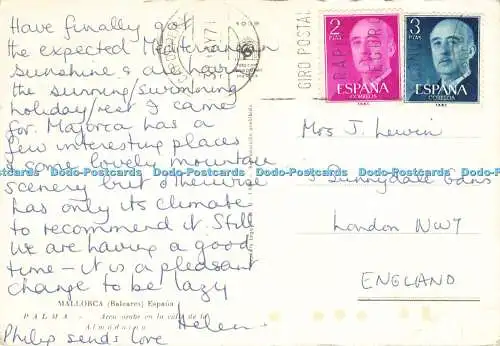 Have finally got
the expected Mediterranean
sunshine & are having
the sunning/swimming
holiday/rest I came
for. Majorca has a
few interesting places
& some lovely mountain
scenery but otherwise
has only its climate
to recommend it. Still
we are having a good
time - it is a pleasant
change to be lazy
Helen
Philip sends love
MALLORCA (Baleares) España
PALMA - Arco árabe en la calle de la
Almudaina
GIRO POSTAL
2
PTAS
ESPAÑA
CORREOS
3
PTAS
ESPAÑA
CORREOS
Mrs J. Lewin
Sunnydale Gdns
London NW7
ENGLAND
Dodo-Postcards